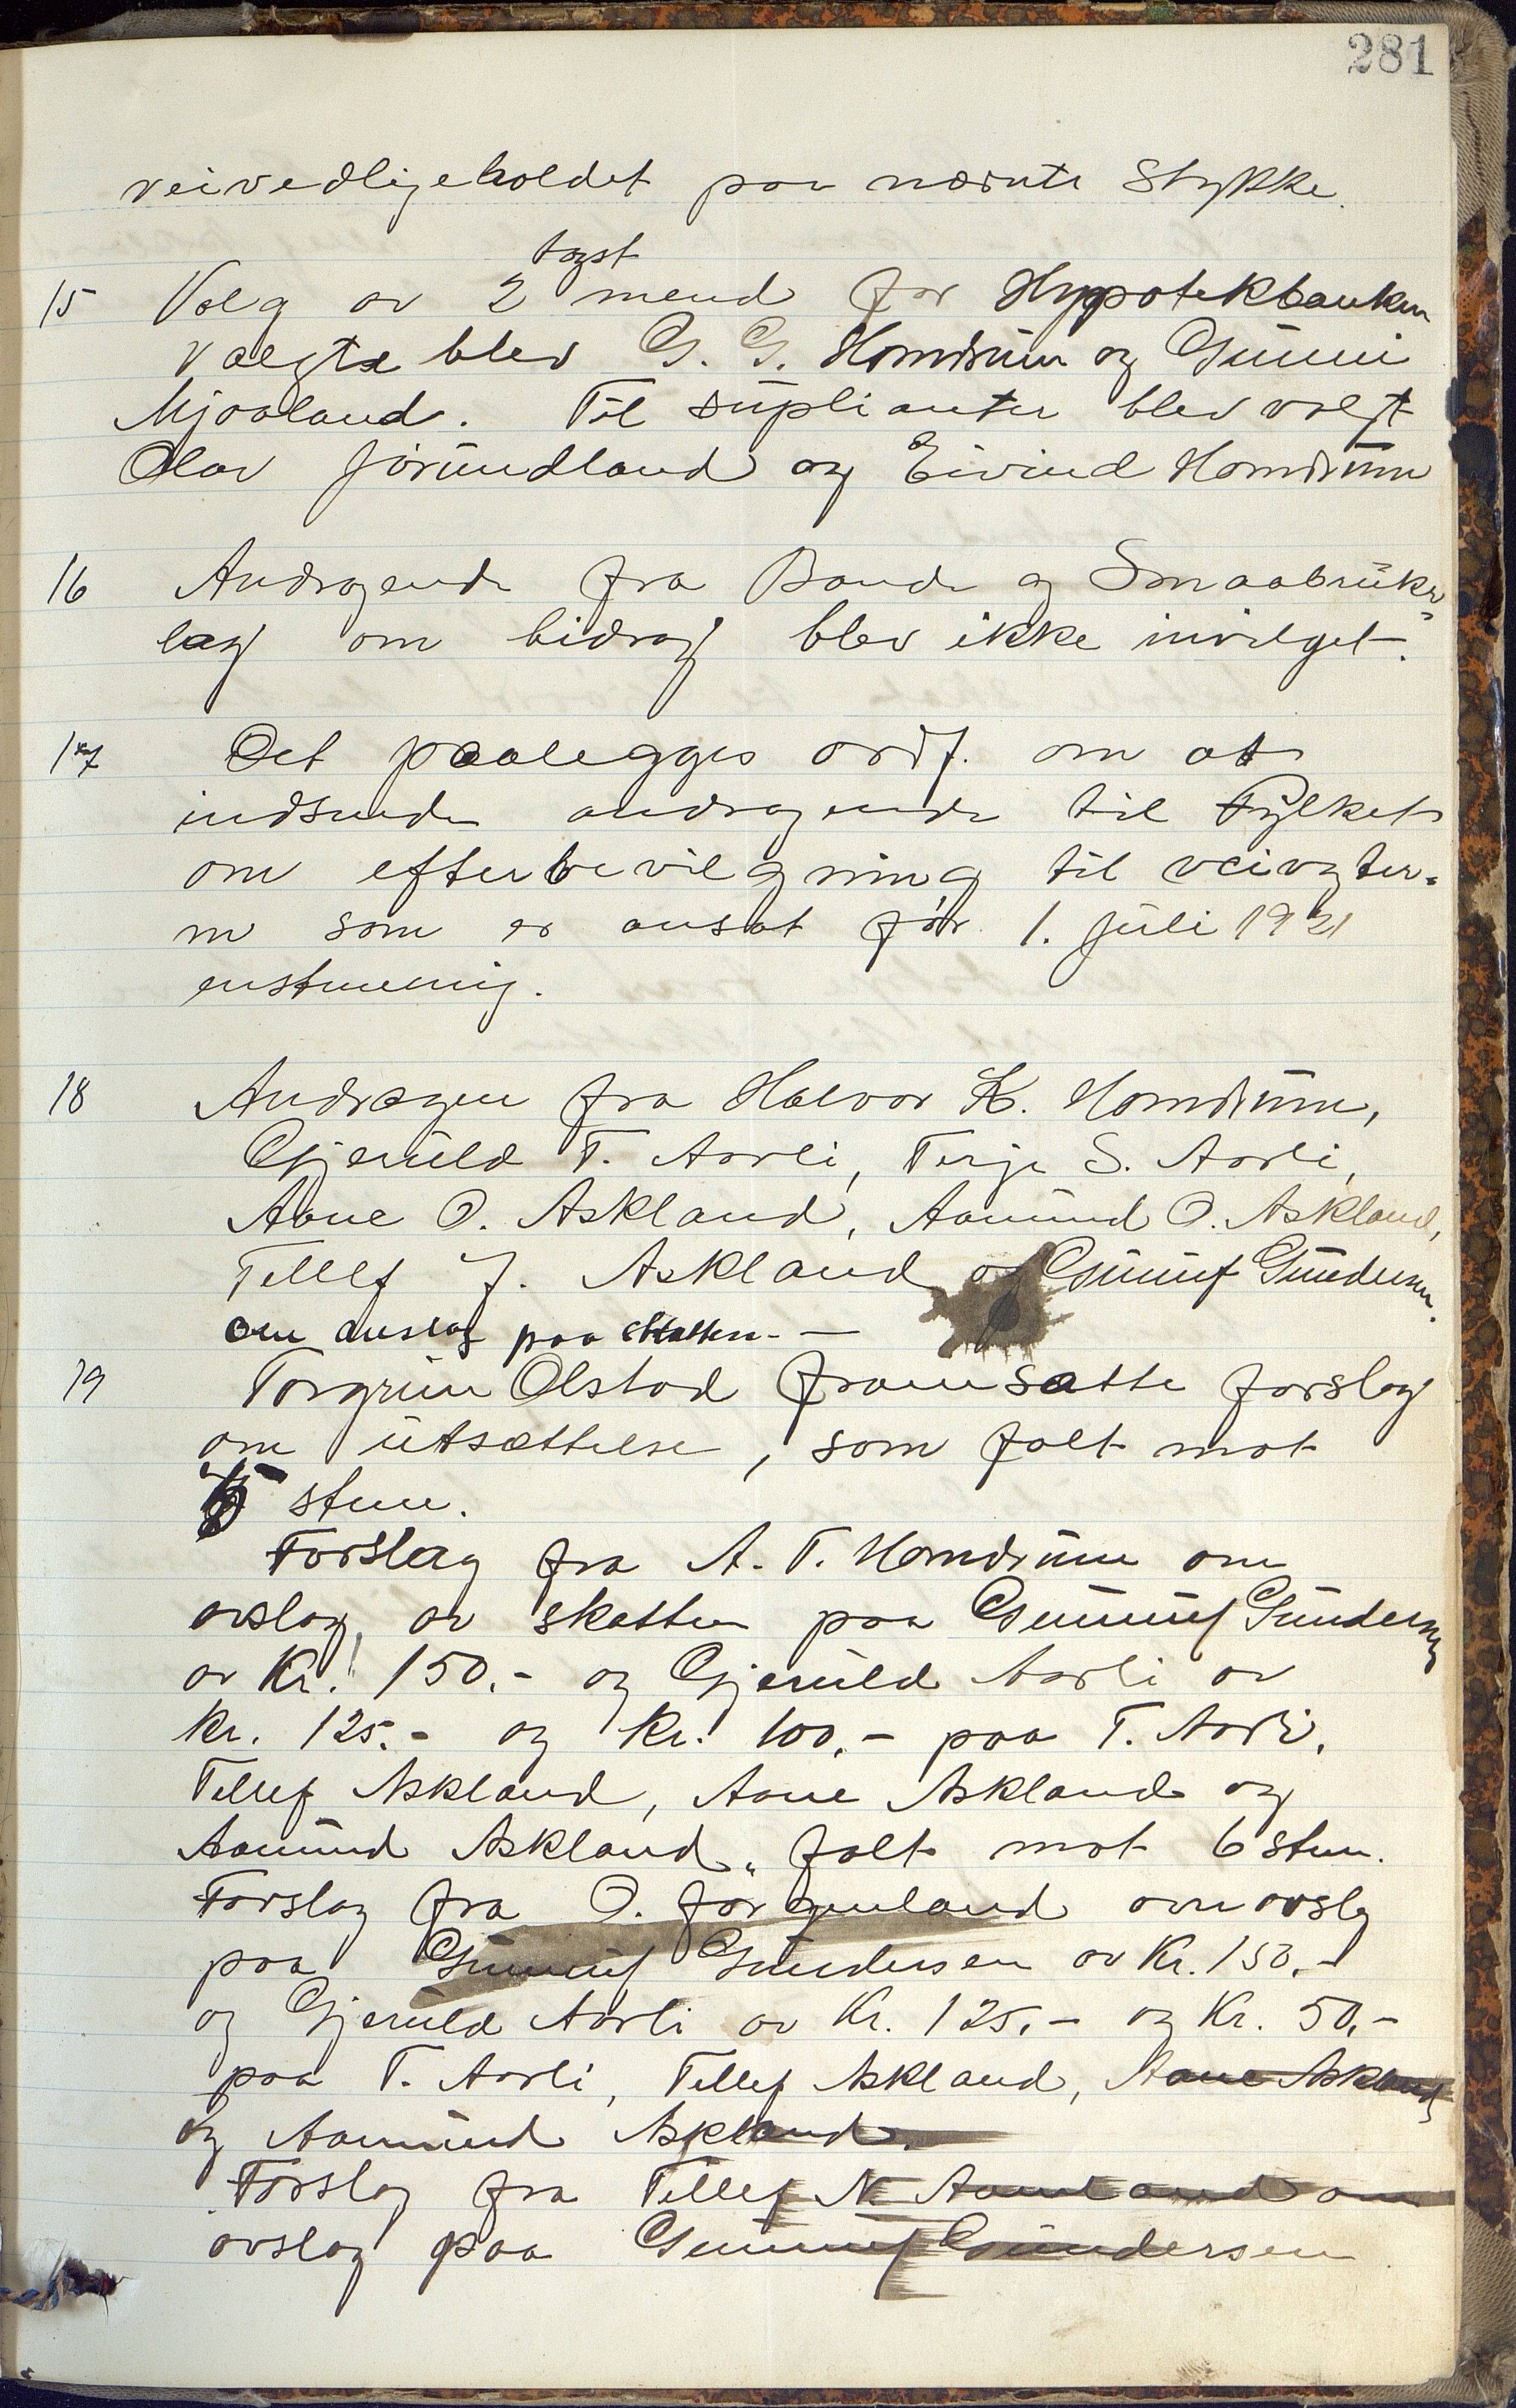 281
veivedligeholdet paa nævnte stykke.
15 Valg av 2 takst mend for Hypotekbanken
valgte blev G. G. Homdrum og Gunni
Mjaaland. Til suplianter blev valgt
Olav Jørundland og Eivind Homdrum
16 Andragende fra Bonde og Smaabruker
lag om bidrag blev ikke invilget.
17 Det paalegges ordf. om at
indsende andragende til Fylket
om efterbevilgning til veivogter-
ne som er ansat før 1. Juli 1921
enstemmig.
18 Andragen fra Halvor K. Homdrum,
Gjeruld T. Aarli, Terje S. Aarli,
Aane O. Askland, Aamund O. Askland,
Tellef J. Askland og Gunnuf Gundersen.
om avslag paa skatten. —
19 Torgrim Olstad framsatte forslag
om utsættelse, som falt mot
5 stem.
Forslag fra A. T. Homdrum om
avslag av skatten paa Gunnuf Gundersen
av Kr. 150.- og Gjeruld Aarli av
Kr. 125.- og Kr. 100.- paa T. Aarli,
Tellef Askland, Aane Askland og
Aamund Askland, falt mot 6 stem.
Forslag fra O. Jørgenland om avslag
paa Gunnuf Gundersen av Kr. 150.-
og Gjeruld Aarli av Kr. 125.- og Kr. 50.-
paa T. Aarli, Tellef Askland, Aane Askland
og Aamund Askland.
Forslag fra Tellef N. Aamland om
avslag paa Gunnuf Gundersen